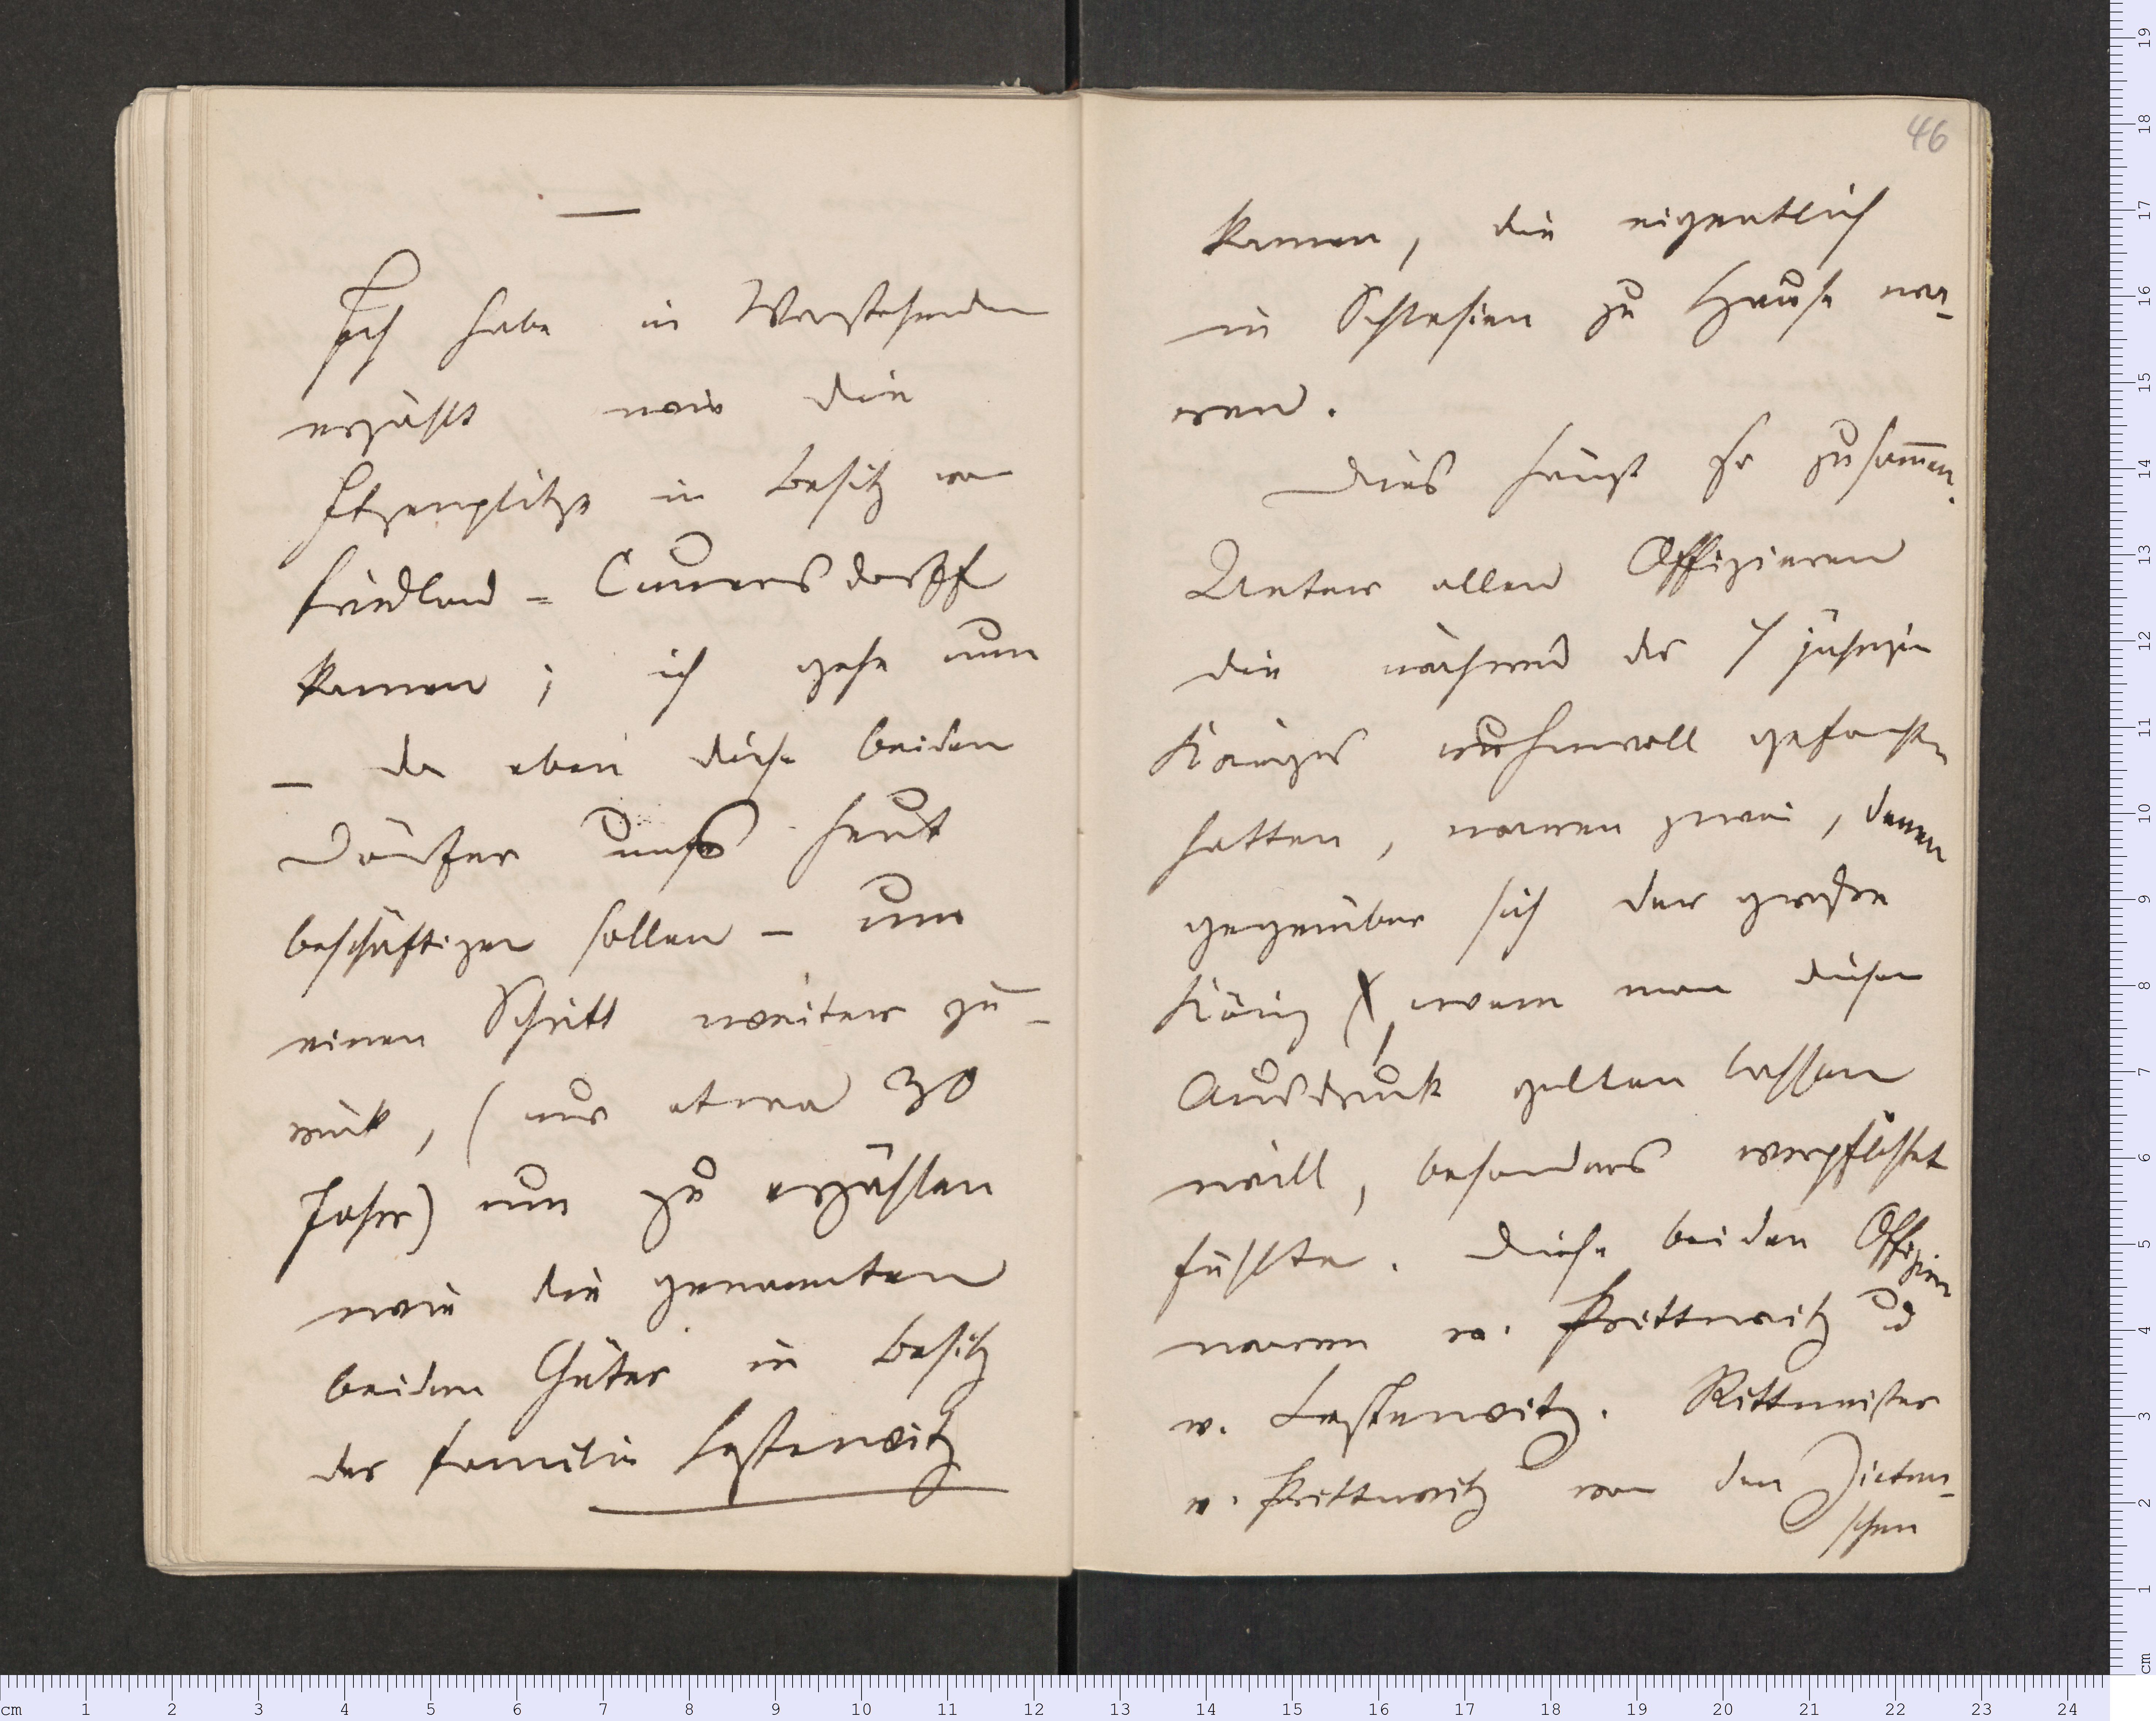 Ich habe in Vorstehendem
erzählt wie die
Itzenplitze in Besitz von
Friedland-Cunersdorff
kamen; ich gehe nun
– da eben diese beiden
Dörfer uns heut
beschäftigen sollen – um
einen Schritt weiter zu-
rück, (nur etwa 30
Jahr) um zu erzählen
wie die genannten
beiden Güter in Besitz
der Familie Lestewitz
46
kamen, die eigentlich
in Schlesien zu Hause wa-
ren.
Dies hängt so zusammen.
Unter allen Offizieren
die während des 7 jährigen
Krieges ruhmvoll gefochten
hatten, waren zwei, denen
gegenüber sich der große
König, wenn man diesen
Ausdruck gelten lassen
will, besonders verpflichtet
fühlte. Diese beiden Offiziere
waren v. Prittwitz u
v. Lestewitz. Rittmeister
v. Prittwitz von den Zieten-
schen